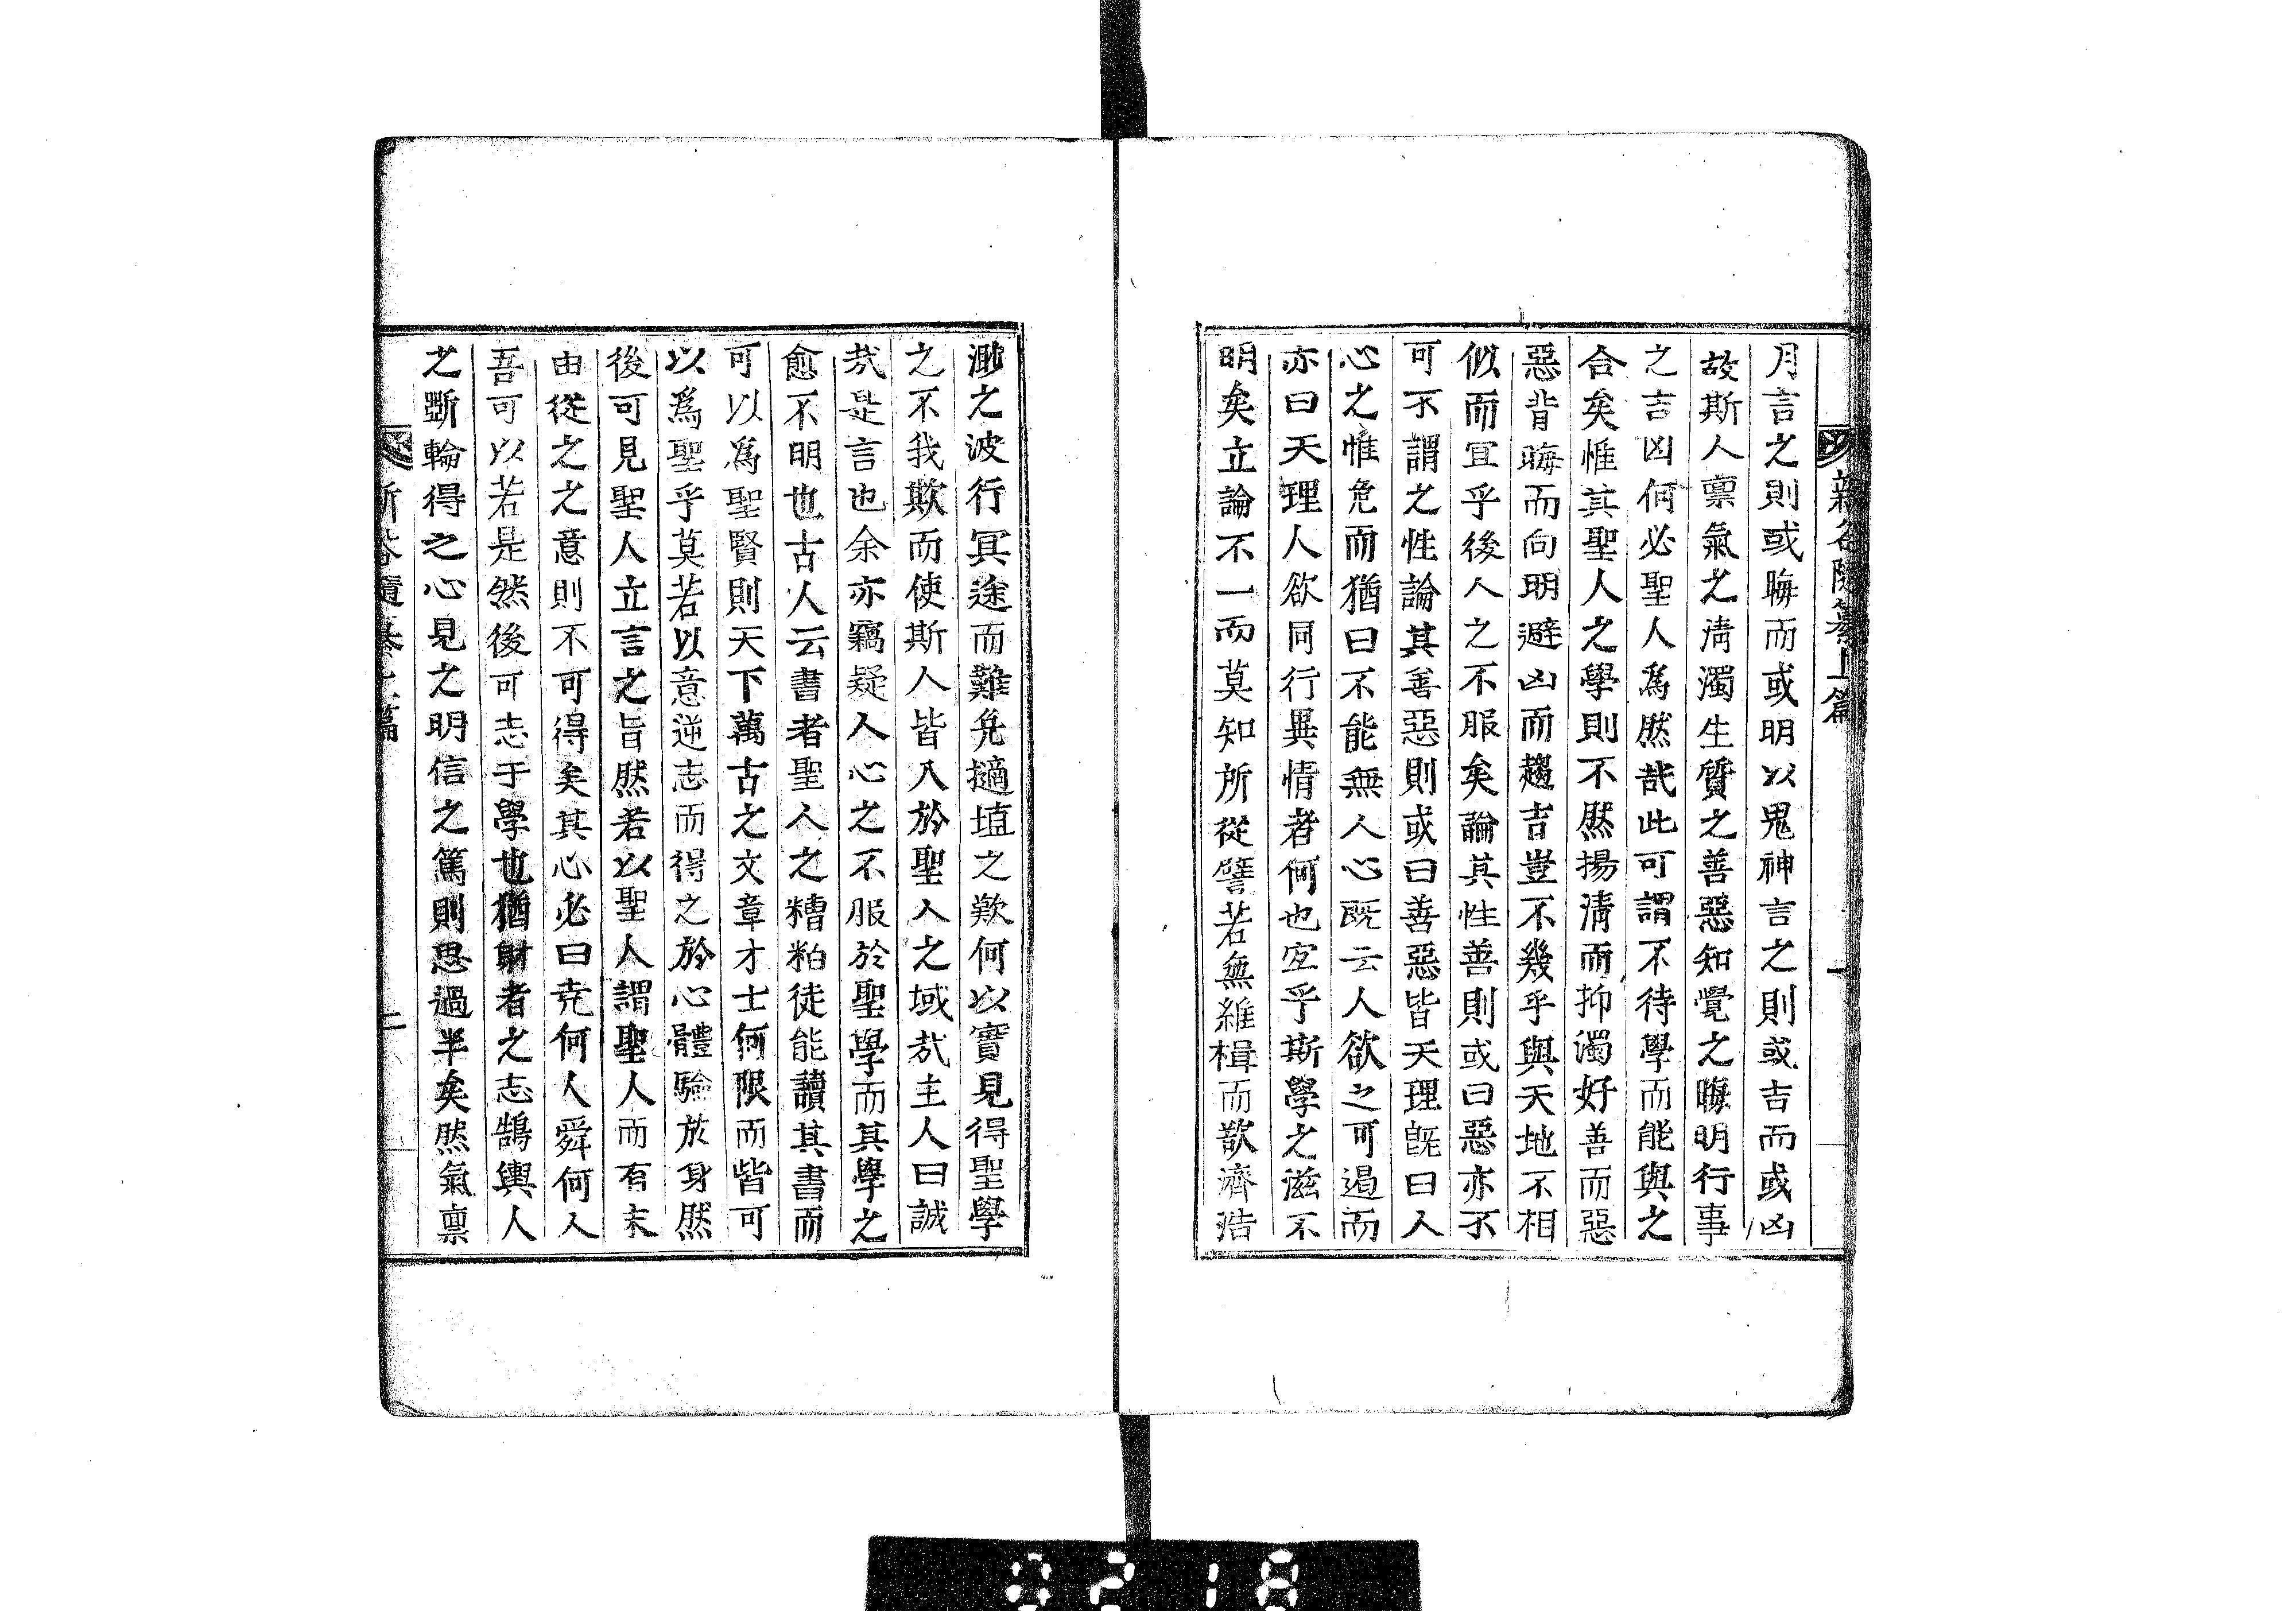 新谷隨筆上篇 一
月言之則或晦而或明以鬼神言之則或吉而或凶
故斯人禀氣之淸濁生質之善惡知覺之晦明行事
之吉凶何必聖人爲然㦲此可謂不待學而能與之
合矣惟其聖人之學則不然揚淸而抑濁好善而惡
惡背晦而向明避凶而趨吉豈不幾乎與天地不相
似而冝乎後人之不服矣論其性善則或曰惡亦不
可不謂之性論其善惡則或曰善惡皆天理旣曰人
心之惟危而猶曰不能無人心既云人欲之可遏而
亦曰天理人欲同行異情者何也宜乎斯學之滋不
明矣立論不一而莫知所從譬若無維楫而欲濟浩
渺之波行冥途而難免擿埴之歎何以實見得聖學
之不我欺而使斯人皆入於聖人之域㦲主人曰誠
㦲是言也余亦竊疑人心之不服於聖學而其學之
愈不明也古人云書者聖人之糟粕徒能讀其書而
可以爲聖賢則天下萬古之文章才士何限而皆可
以爲聖乎莫若以意逆志而得之於心體驗於身然
後可見聖人立言之旨然若以聖人謂聖人而有末
由從之之意則不可得矣其心必曰堯何人舜何人
吾可以若是然後可志于學也猶財者之志鵠輿人
之斲輪得之心見之明信之篤則思過半矣然氣禀
隨 篇 二
0218